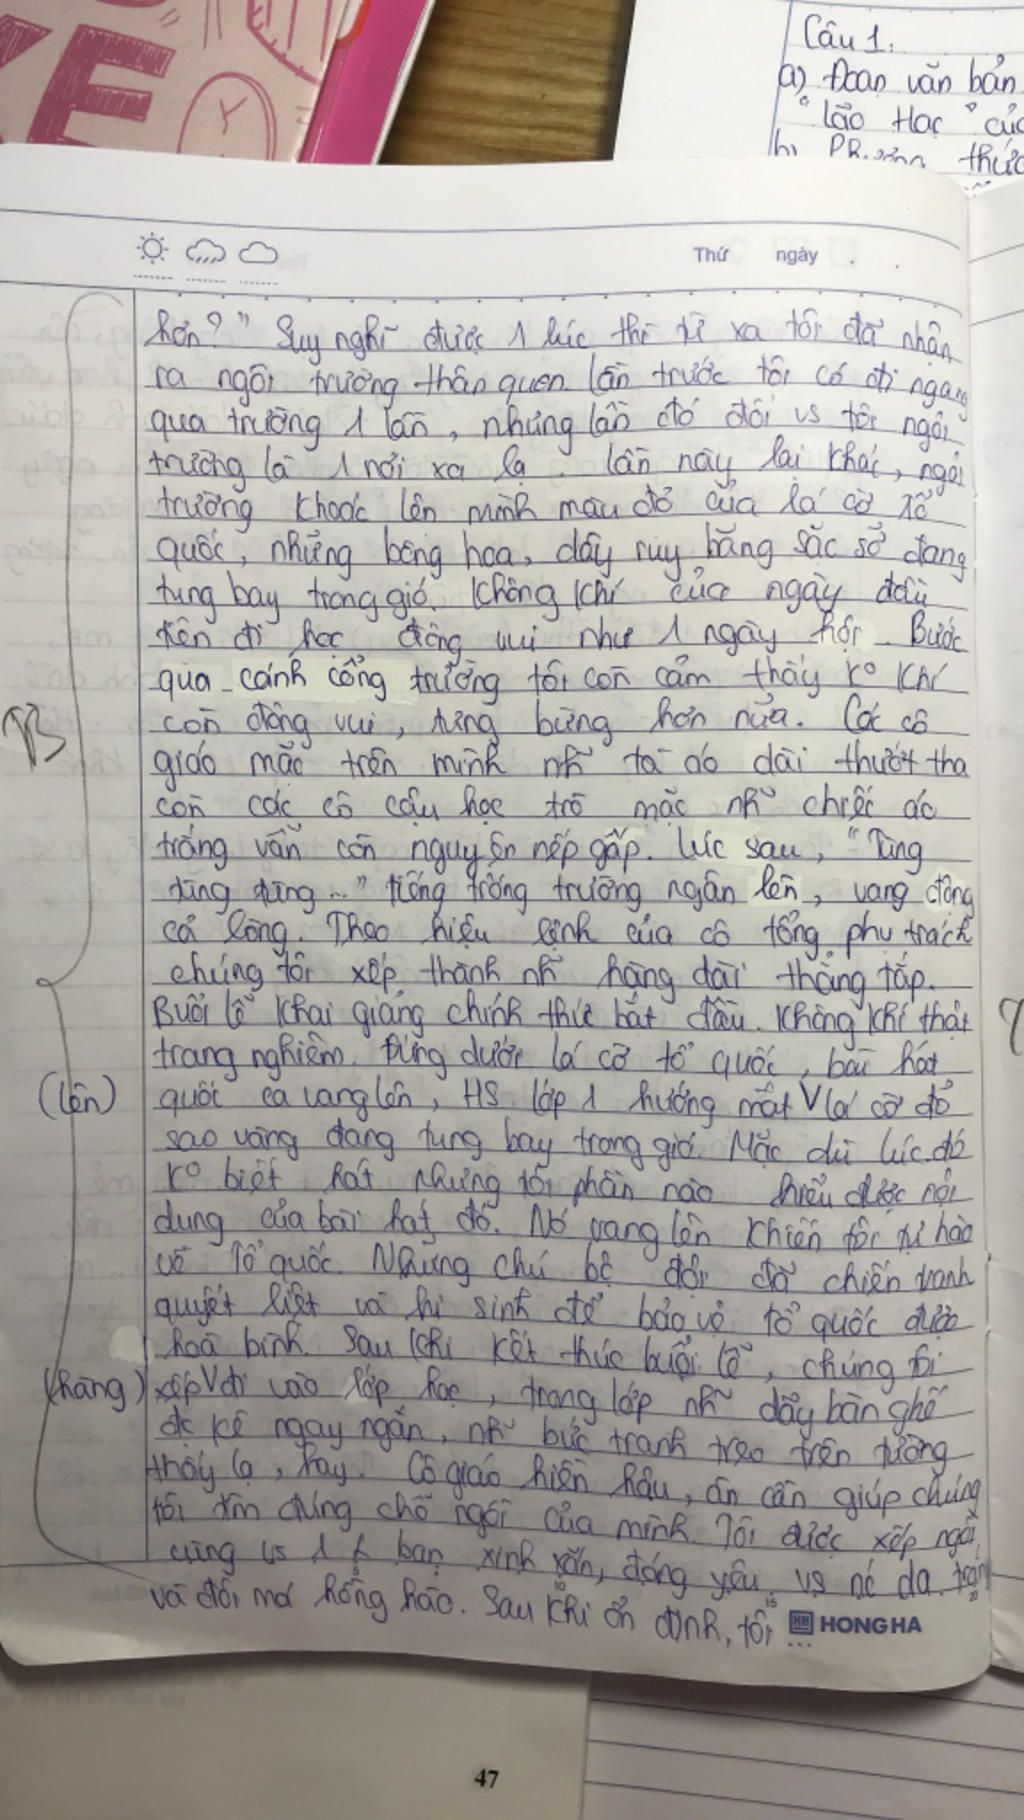 Câu 1.
a) Đoạn văn bản
"Lão Hạc" của
b) Phương thức
Thứ ngày
hơn?" Suy nghĩ được 1 lúc thì từ xa tôi đã nhận
ra ngôi trường thân quen. Lần trước tôi có đi ngang
qua trường 1 lần, nhưng lần đó đối vs tôi ngôi
trường là 1 nơi xa lạ. Lần này lại khác, ngôi
trường khoác lên mình màu đỏ của lá cờ Tổ
quốc, những bông hoa, dây ruy băng sặc sỡ đang
tung bay trong gió. Không khí của ngày đầu
tiên đi học đông vui như 1 ngày hội. Bước
qua cánh cổng trường tôi còn cảm thấy ko khí
còn đông vui, tưng bừng hơn nữa. Các cô
giáo mặc trên mình nh~ tà áo dài thướt tha
còn các cô cậu học trò mặc nh~ chiếc áo
trắng vẫn còn nguyên nếp gấp. Lúc sau, "Tùng
tùng tùng..." tiếng trống trường ngân lên, vang động
cả lòng. Theo hiệu lệnh của cô tổng phụ trách
chúng tôi xếp thành nh~ hàng dài thẳng tắp.
Buổi lễ khai giảng chính thức bắt đầu. Không khí thật
trang nghiêm. Đứng dưới lá cờ tổ quốc, bài hát
(lên) quốc ca vang lên, HS lớp 1 hướng mắt V lá cờ đỏ
sao vàng đang tung bay trong gió. Mặc dù lúc đó
ko biết hát nhưng tôi phần nào hiểu được nội
dung của bài hát đó. Nó vang lên khiến tôi tự hào
về Tổ quốc. Những chú bộ đội đã chiến tranh
quyết liệt và hi sinh để bảo vệ tổ quốc được
hoà bình. Sau khi kết thúc buổi lễ, chúng tôi
(hàng) xếp V đi vào lớp học, trong lớp nh~ dãy bàn ghế
đc kê ngay ngắn, nh~ bức tranh treo trên tường
thấy lạ, hay. Cô giáo hiền hậu, ân cần giúp chúng
tôi tìm đúng chỗ ngồi của mình. Tôi được xếp ngồi
cùng vs 1 bạn xinh xắn, đáng yêu vs nc da trắng
và đôi má hồng hào. Sau khi ổn định, tôi
HH HONG HA
TB
47